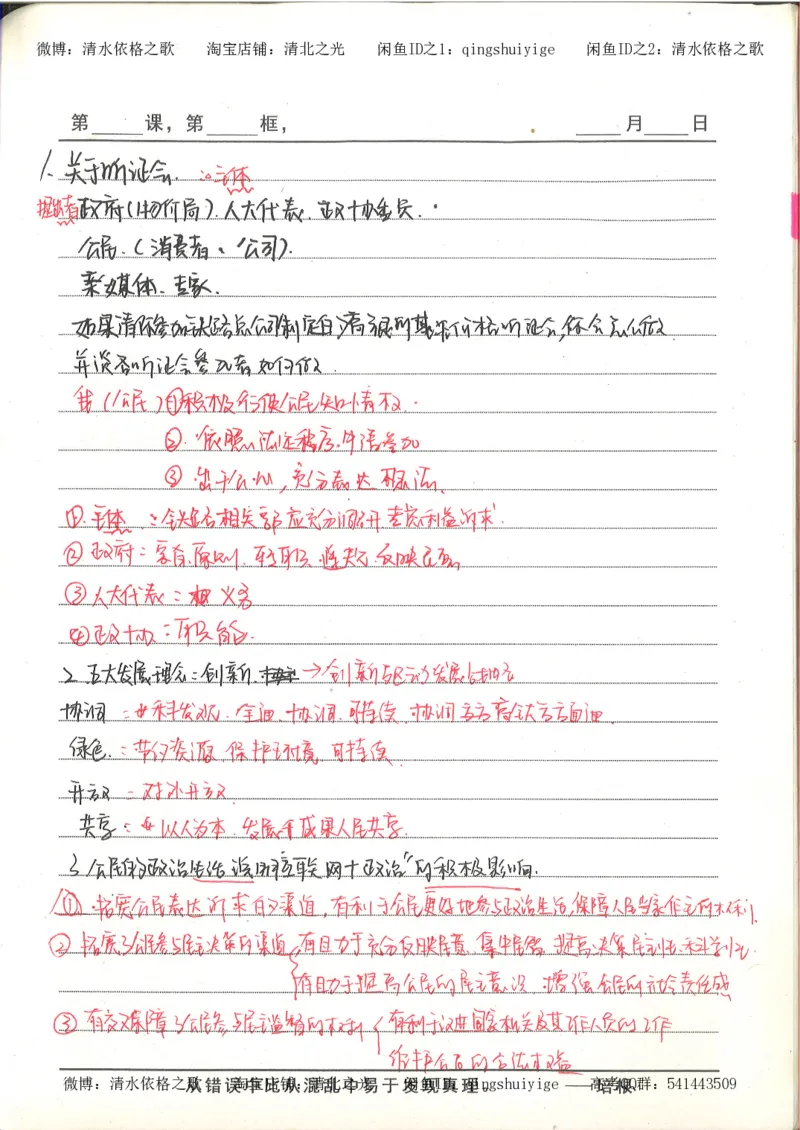 微博：清水依格之歌 淘宝店铺：清北之光 闲鱼ID之1：qingshuiyige 闲鱼ID之2：清水依格之歌
第 课，第 框， 月 日
1、关于听证会. 主体
政府(物价局). 人大代表. 政协委员.
公民. (消费者、公司).
媒体. 专家.
如果清你参加铁路总公司制定 价格听证会,你会怎么做
并谈谈听证会参与者如何做.
我 (公民) ①积极行使公民知情权.
②. 依照法定程序,申请参加
③. 出于公心,充分表达
①. 主体：铁路相关部应充分 利益诉求.
②政府：宗旨.原则. 职. 反映民意.
③人大代表： 义务
④政协：职能.
2. 五大发展理念：创新. →创新驱动发展战略
协调：科发观. 全面. 协调. 可持续.
绿色：节约资源. 保护环境. 可持续.
开放：对外开放
共享：以人为本. 发展成果人民共享.
3. 公民的政治生活 互联网+政治"的积极影响.
① 拓宽公民表达诉求的渠道,有利于公民更好地参与政治生活,保障人民当家作主的权利.
② 拓宽了公民参与民主决策的渠道,有助于充分反映民意. 集中民智. 提高决策民主性.科学性.
有助于提高公民的民主意识. 增强公民的社会责任感
③ 有效保障了公民参与民主监督的权利 有利于改进国家机关及其工作人员的工作
维护公民的合法权益
微博：清水依格之歌 淘宝店铺：清北之光 闲鱼ID之1：qingshuiyige 高考QQ群：541443509
从错误中比从混乱中易于发现真理。——培根